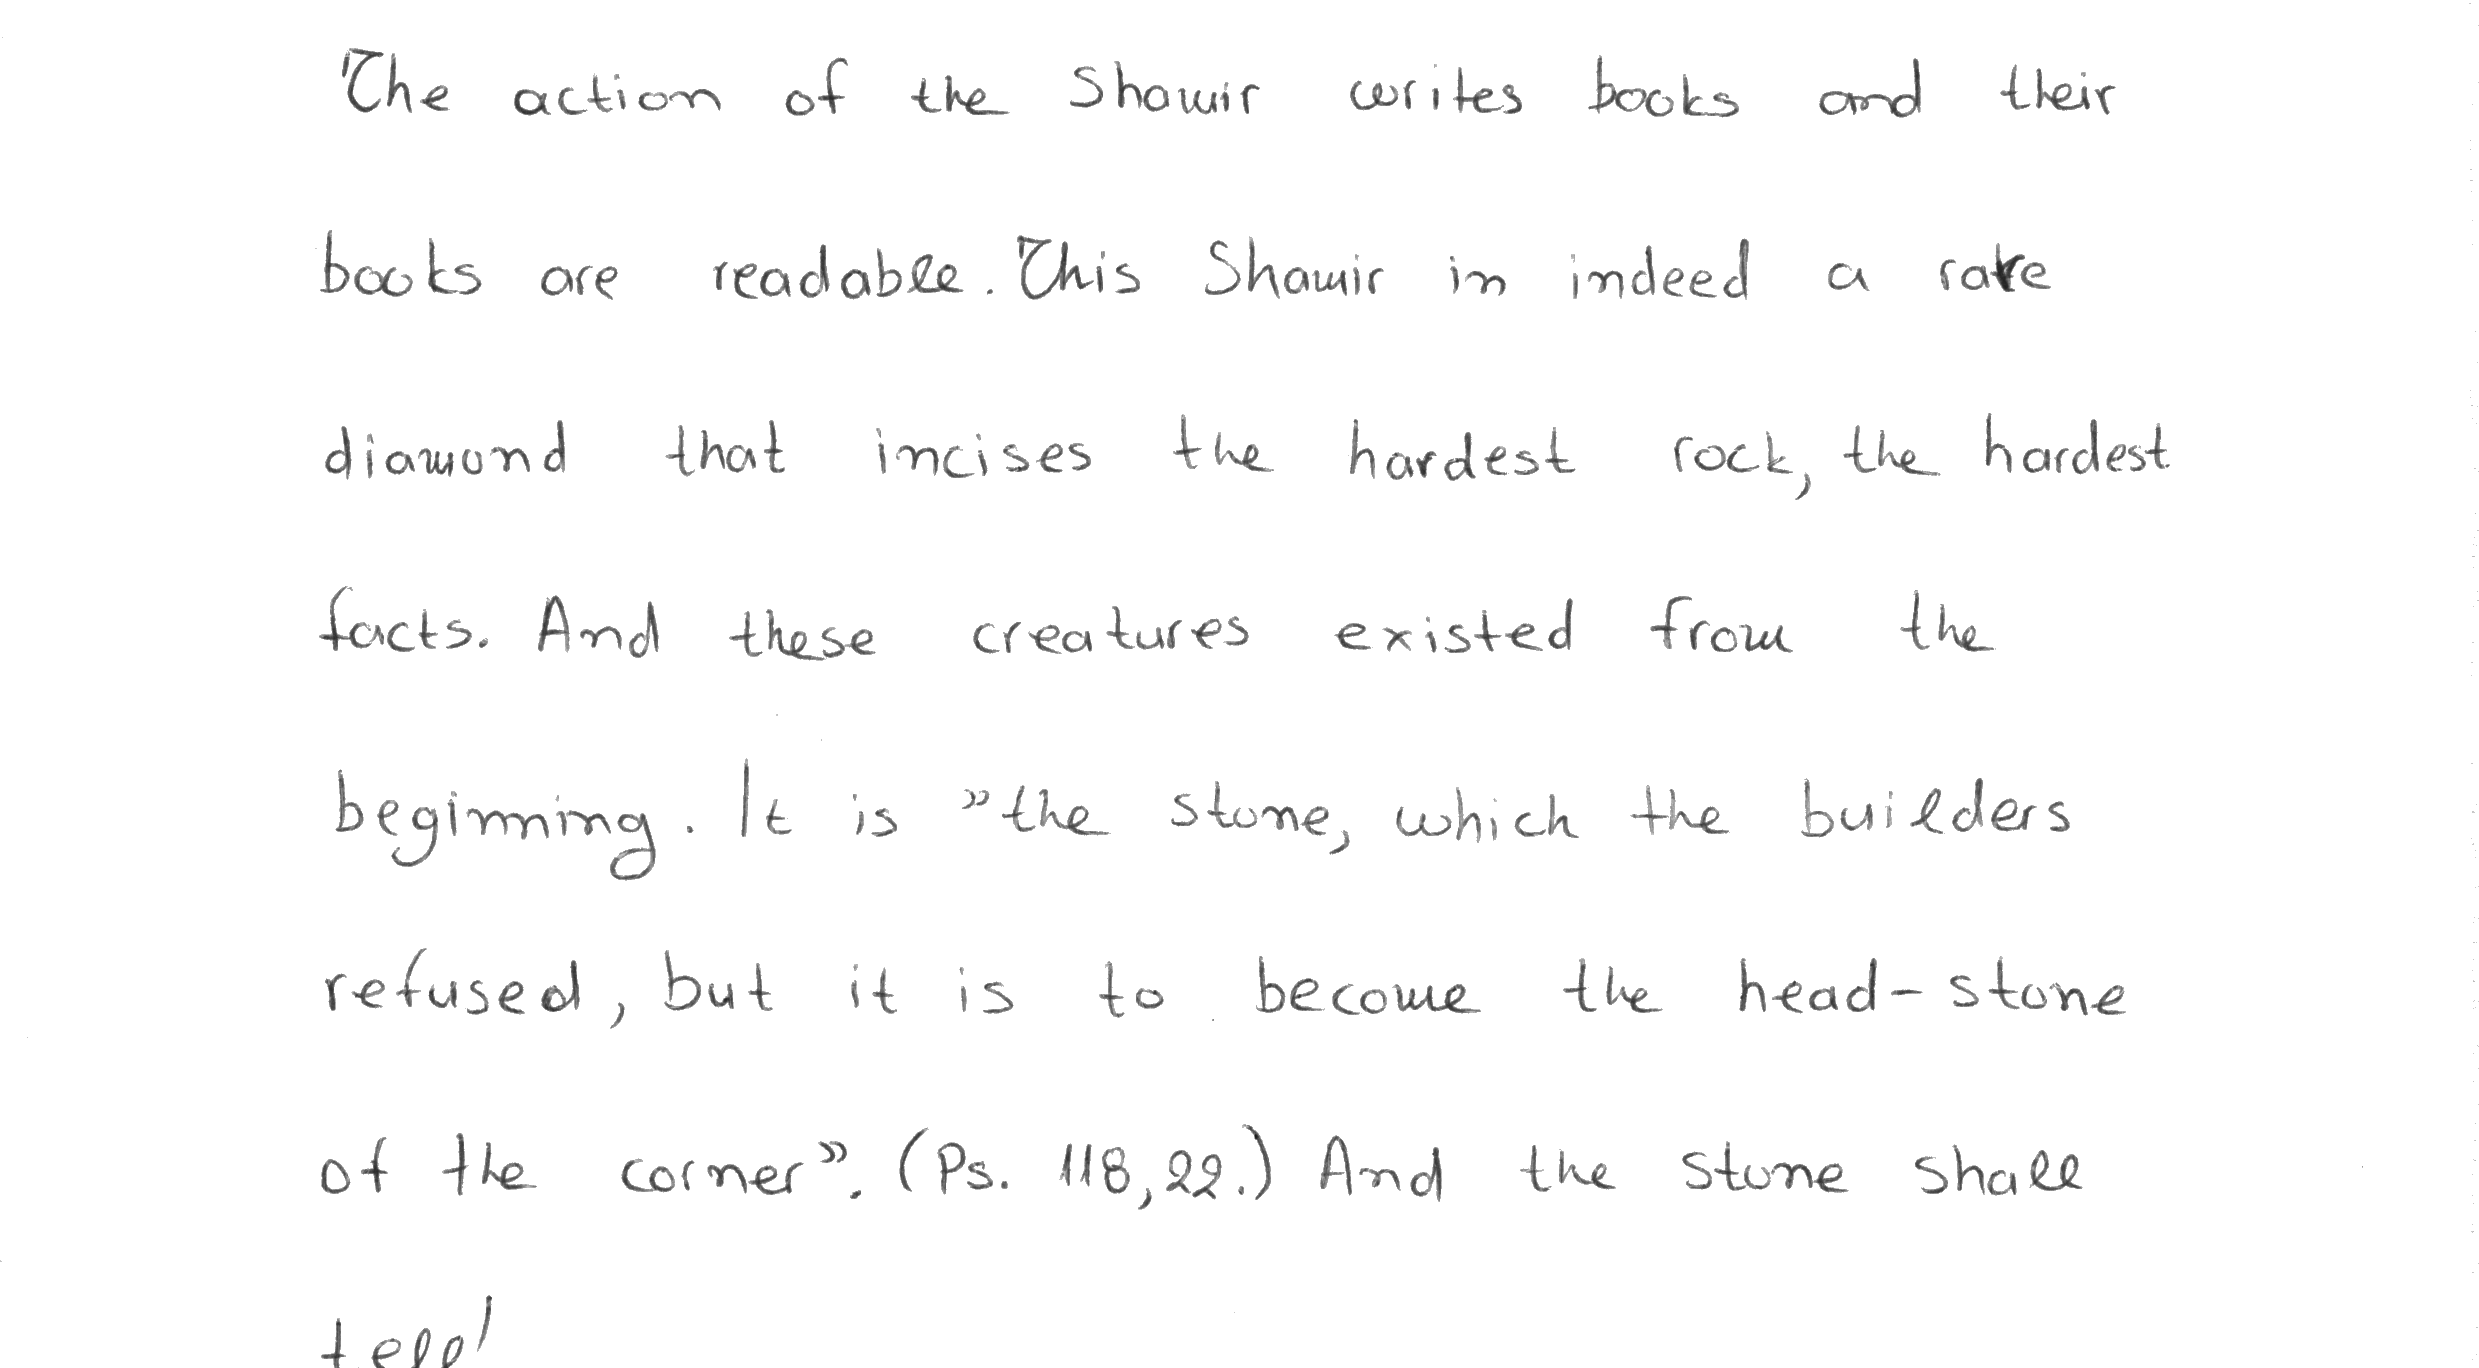 The action of the Shamir writes books and their
books are readable. This Shamir in indeed a rare
diamond that incises the hardest rock, the hardest
facts. And these creatures existed from the
beginning. It is »the stone, which the builders
refused, but it is to become the head-stone
of the corner». (Ps. 118,22.) And the stone shall
tell!